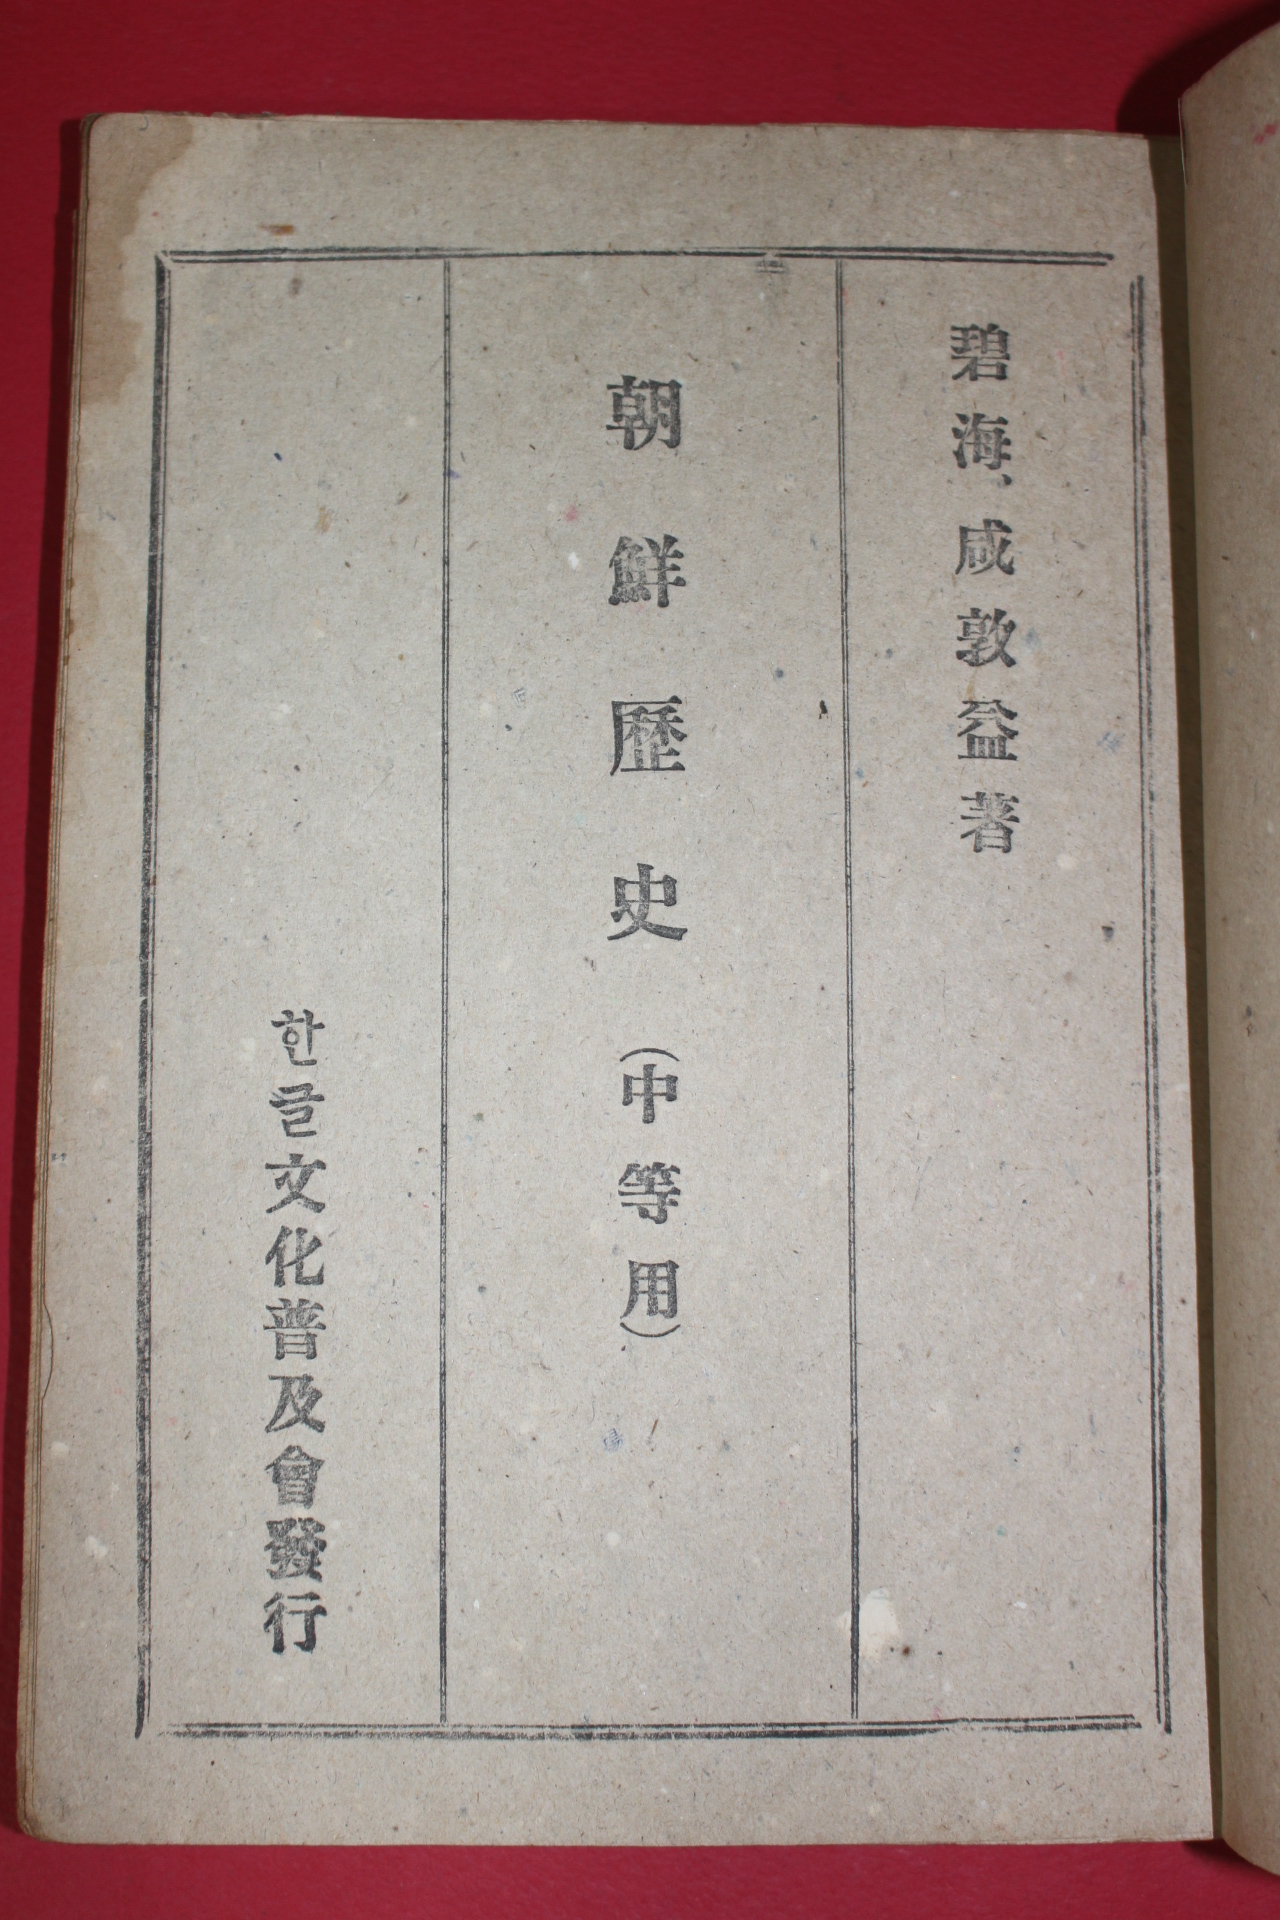 碧海、咸敦益著
朝鮮歷史（中等用）
한글文化普及會發行